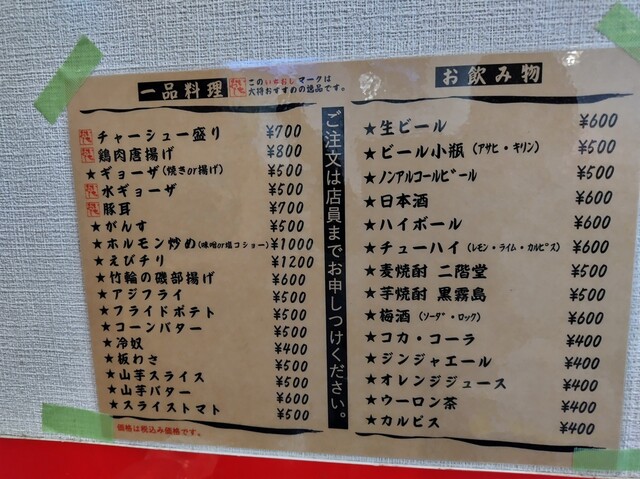 一品料理
この いちおし マークは
大将おすすめの逸品です。
チャーシュー盛り ¥700
鶏肉唐揚げ ¥800
★ギョーザ(焼きor揚げ) ¥500
水ギョーザ ¥500
豚耳 ¥700
★がんす ¥500
★ホルモン炒め(味噌or塩コショー) ¥1000
★えびチリ ¥1200
★竹輪の磯部揚げ ¥600
★アジフライ ¥500
★フライドポテト ¥500
★コーンバター ¥500
★冷奴 ¥400
★板わさ ¥500
★山芋スライス ¥500
★山芋バター ¥600
★スライストマト ¥500
価格は税込み価格です。
ご注文は店員までお申しつけください。
お飲み物
★生ビール ¥600
★ビール小瓶(アサヒ・キリン) ¥500
★ノンアルコールビール ¥500
★日本酒 ¥600
★ハイボール ¥600
★チューハイ(レモン・ライム・カルピス) ¥600
★麦焼酎 二階堂 ¥500
★芋焼酎 黒霧島 ¥500
★梅酒(ソーダ・ロック) ¥600
★コカ・コーラ ¥400
★ジンジャエール ¥400
★オレンジジュース ¥400
★ウーロン茶 ¥400
★カルピス ¥400